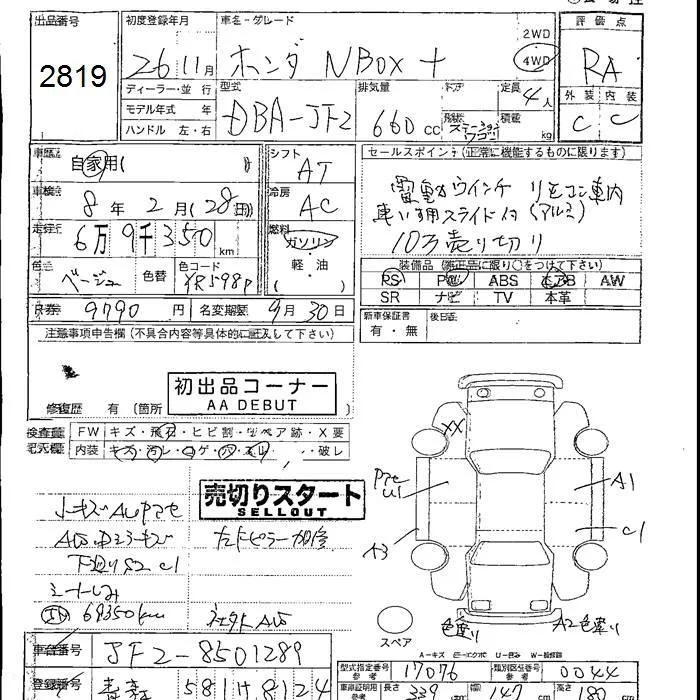 出品番号
2819
初度登録年月
26 11月
車名・グレード
ホンダ NBOX +
2WD
4WD
評価点
RA
外装 内装
C C
ディーラー・並行
モデル年式 年
ハンドル 左・右
型式
DBA-JF2
排気量
660cc
定員
4人
積載
kg
車歴
自家用( )
車検
8年 2月(28日)
走行
6万9千350km
色
ベージュ
色替
色コード
YR598P
シフト
AT
冷房
AC
燃料
ガソリン
軽・油
セールスポイント(正常に機能するものに限ります)
電動ウインチ リモコン車内
車いす用スライド付(アルミ)
10万売り切り
装備品(純正品に限り○をつけて下さい)
RS ABS AW
SR ナビ TV 本革
R券 9790円
名変期限 9月30日
新車保証書
有・無
後日
注意事項申告欄(不具合内容等具体的に記入して下さい)
修復歴 有 (箇所
初出品コーナー
AA DEBUT
検査員
記入欄
FW キズ・飛石・ヒビ割・リペア跡・X要
内装
・破レ
売切りスタート
SELLOUT
下廻りS2 C1
69350km
XX
A1
C1
A3
U1
色塗り
A2色塗り
スペア
A-キズ E-エクボ U-凹み W-補修跡
車台番号
JF2-8501289
登録番号
581
8124
型式指定番号
17076
類別区分番号
0044
車庫証明用
参考
長さ
339
幅
147
高さ
180